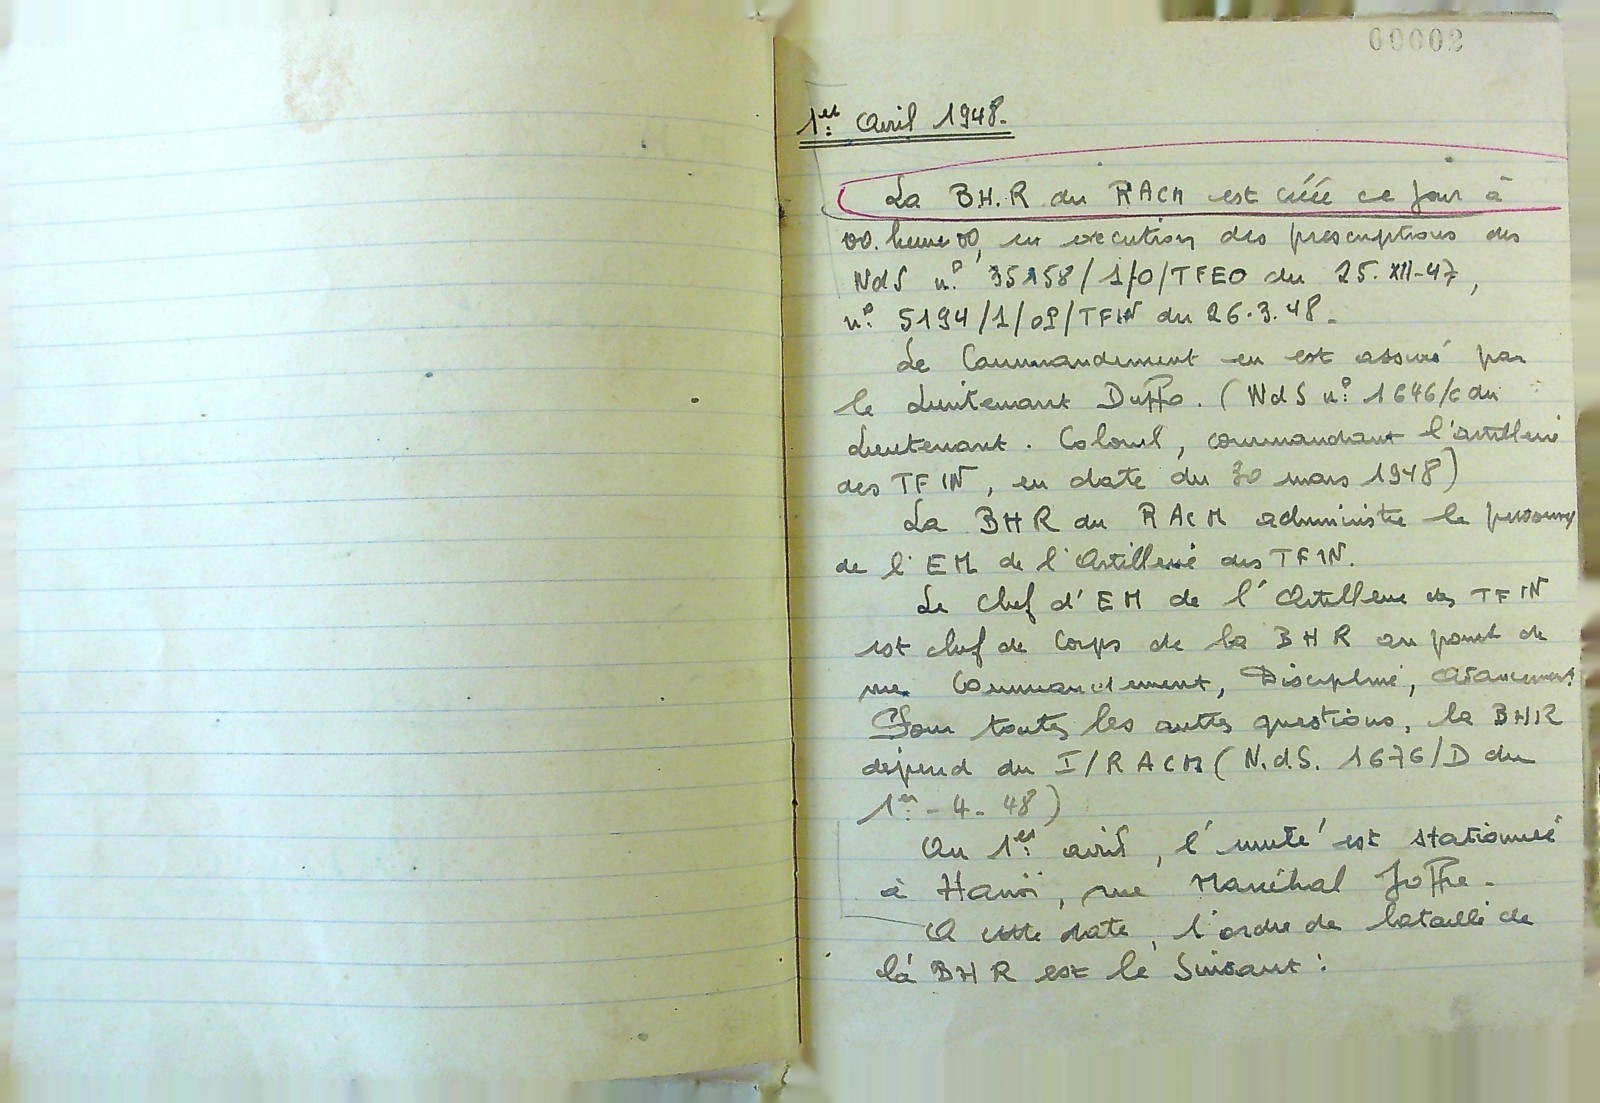 00002
1er Avril 1948.
La BH.R du RACM est créée ce jour à
00.heure 00, en execution des prescriptions des
NdS n° 35158/1/O/TFEO du 25.XII-47,
n° 5194/1/OP/TFIN du 26.3.48.
Le Commandement en est assuré par
le Lieutenant Duffo. (NdS n° 1646/C du
Lieutenant. Colonel, commandant l'artillerie
des TFIN, en date du 30 mars 1948)
La BHR du RACM administre le personnel
de l'EM de l'Artillerie des TFIN.
Le Chef d'EM de l'Artillerie des TFIN
est chef de Corps de la BHR au point de
vue Commandement, Discipline, Avancement.
Pour toutes les autres questions, la BHR
dépend du I/RACM (N.d.S. 1676/D du
1er-4-48)
Au 1er avril, l'unité est stationnée
à Hanoï, rue Maréchal Joffre.
A cette date, l'ordre de bataille de
la BHR est le Suivant :